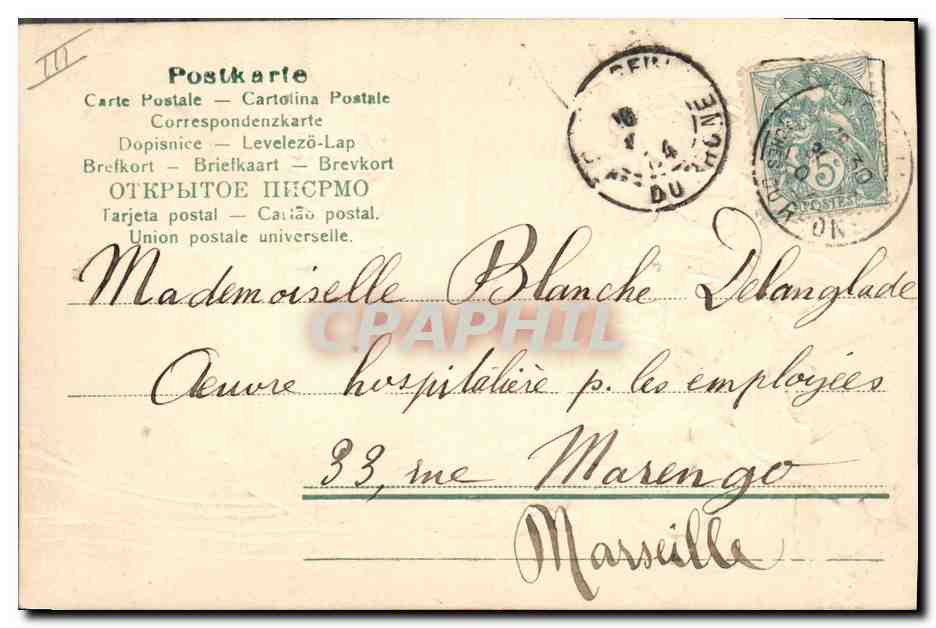 III
Postkarte
Carte Postale — Cartolina Postale
Correspondenzkarte
Dopisnice — Levelező-Lap
Brefkort — Briefkaart — Brevkort
ОТКРЫТОЕ ПИСРМО
Tarjeta postal — Cartão postal.
Union postale universelle.
DU RHONE
5c
POSTES
Mademoiselle Blanche Delanglade
CPAPHIL
Oeuvre hospitalière p. les employées
33, rue Marengo
Marseille